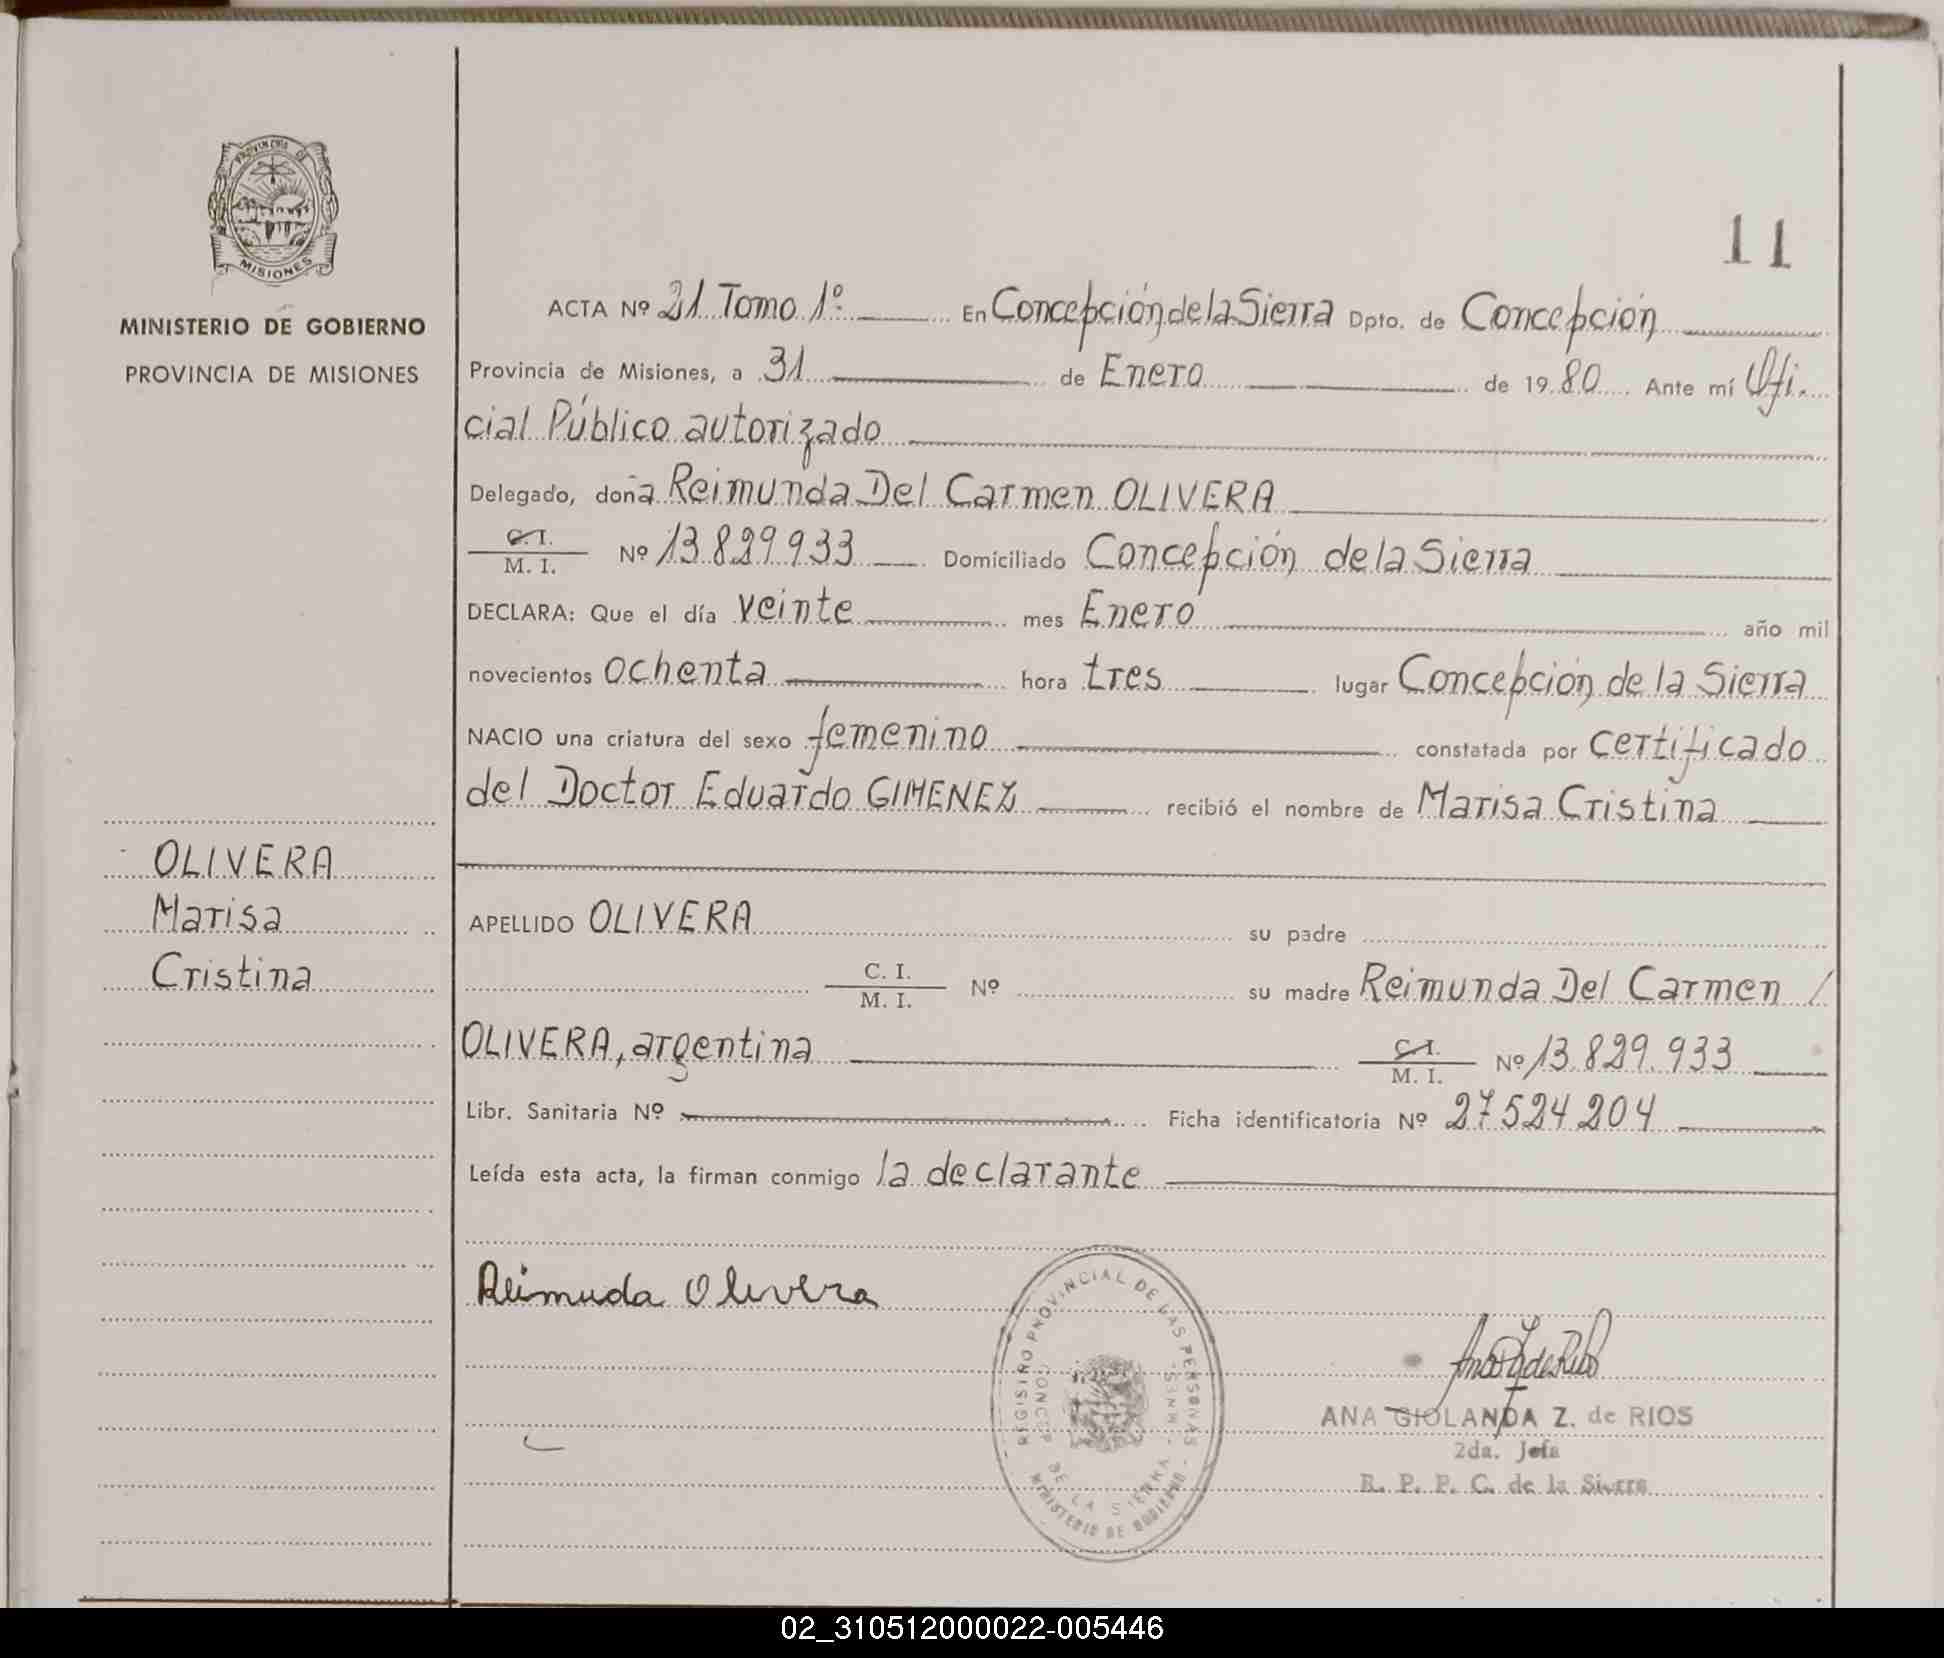 PROVINCIA DE
MISIONES
MINISTERIO DE GOBIERNO
PROVINCIA DE MISIONES
11
ACTA Nº 21 Tomo 1º En Concepción de la Sierra Dpto. de Concepción
Provincia de Misiones, a 31 de Enero de 1980 Ante mí Ofi-
cial Público autorizado
Delegado, doña Reimunda Del Carmen OLIVERA
C. I.
M. I. Nº 13.829.933 Domiciliado Concepción de la Sierra
DECLARA: Que el día veinte mes Enero año mil
novecientos ochenta hora tres lugar Concepción de la Sierra
NACIO una criatura del sexo femenino constatada por certificado
del Doctor Eduardo GIMENEZ recibió el nombre de Marisa Cristina
OLIVERA
Marisa
Cristina
APELLIDO OLIVERA su padre
C. I.
M. I. Nº su madre Reimunda Del Carmen /
OLIVERA, argentina C. I.
M. I. Nº 13.829.933
Libr. Sanitaria Nº Ficha identificatoria Nº 27524204
Leída esta acta, la firman conmigo la declarante
Reimuda Olivera
REGISTRO PROVINCIAL DE LAS PERSONAS
CONCEP. DE LA SIERRA - MNES.
MINISTERIO DE GOBIERNO
ANA GIOLANDA Z. de RIOS
2da. Jefa
R. P. P. C. de la Sierra
02_310512000022-005446